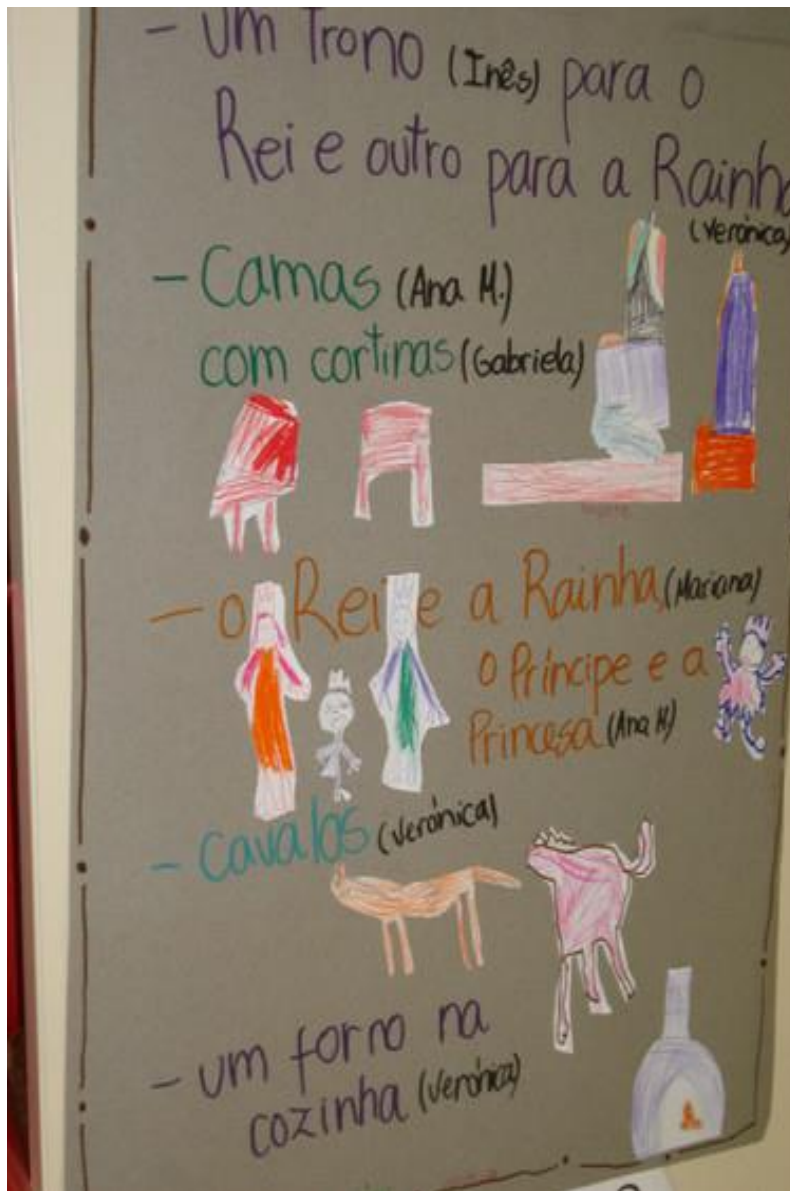 - um Trono (Inês) para o
Rei e outro para a Rainha
(Verónica)
- Camas (Ana M.)
com cortinas (Gabriela)
- o Rei e a Rainha, (Mariana)
o Príncipe e a
Princesa (Ana M)
- Cavalos (Verónica)
- um forno na
cozinha (Verónica)